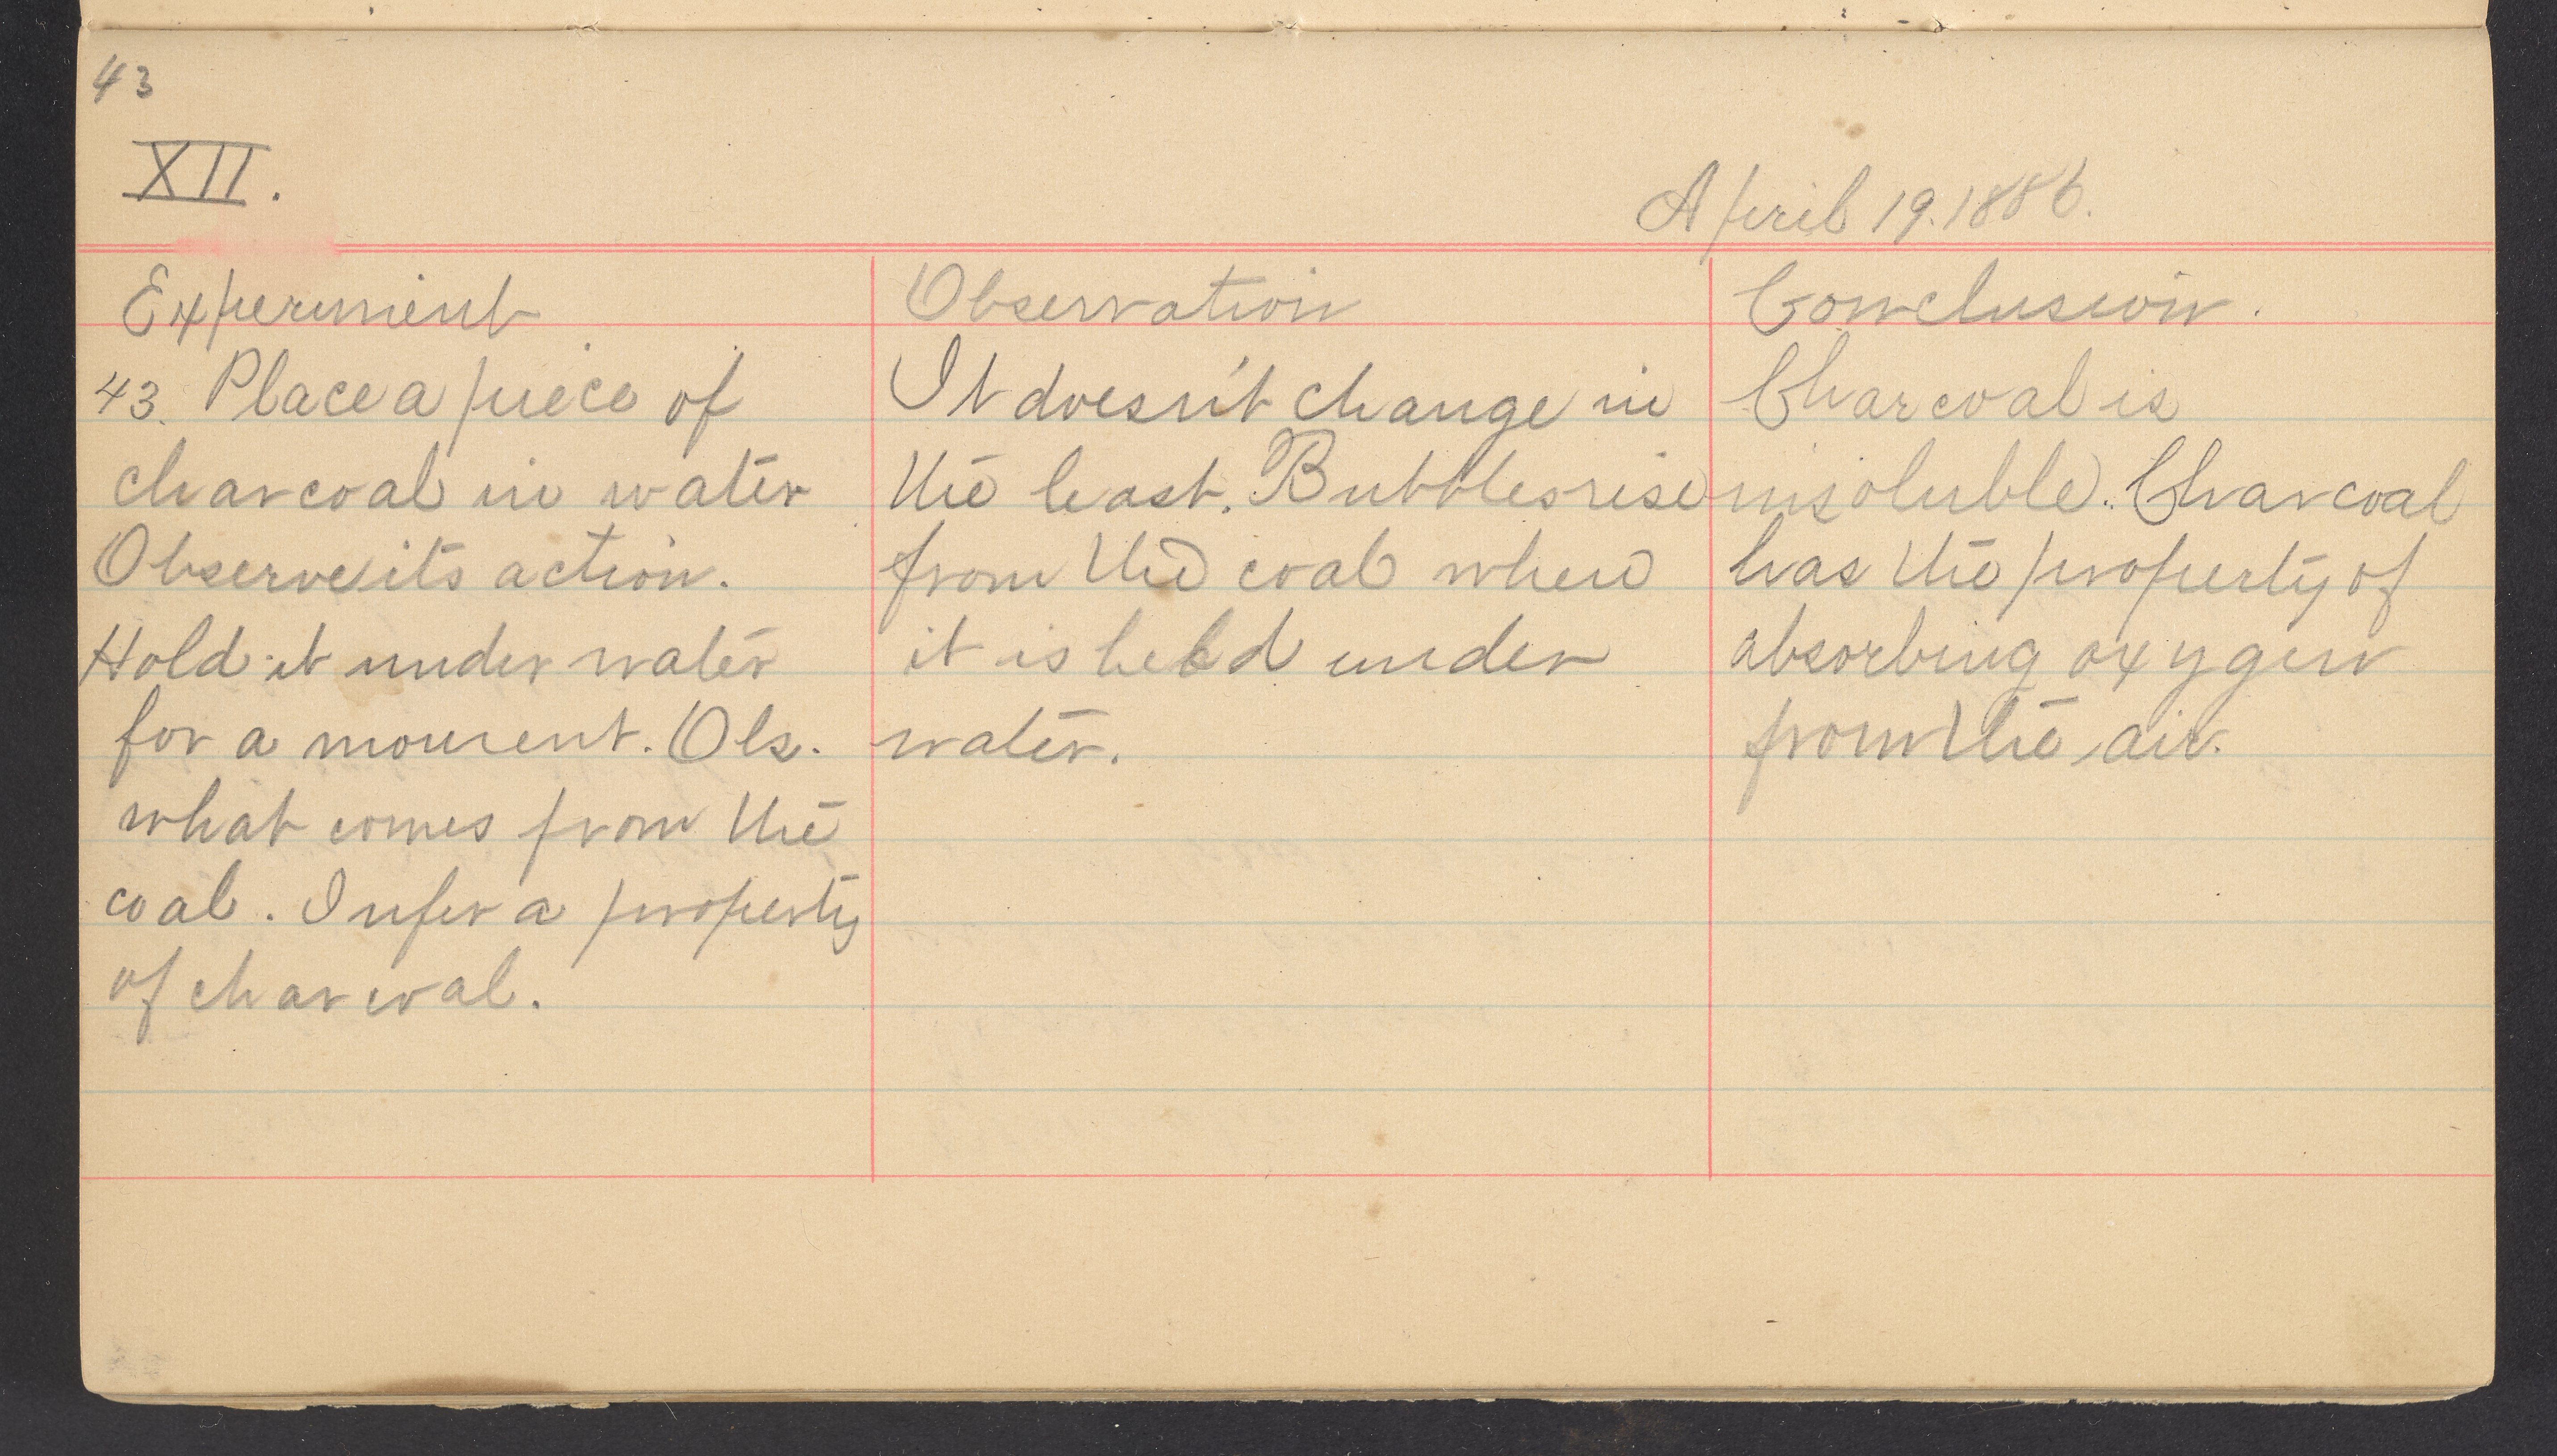 43
XII.
April 19. 1886.
Experiment
43. Place a piece of
charcoal in water
Observe its action.
Hold it under water
for a moment. Obs.
what comes from the
coal. Infer a property
of charcoal.
Observation
It doesn't change in
the least. Bubbles rise
from the coal when
it is held under
water.
Conclusion.
Charcoal is
insoluble. Charcoal
has the property of
absorbing oxygen
from the air.